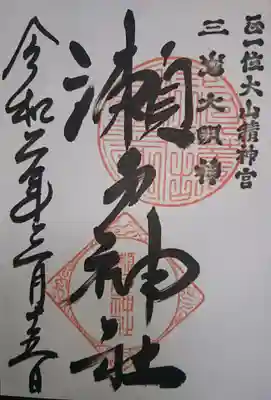 正一位大山積神宮
三島大明神
瀬戸神社
令和二年三月十五日